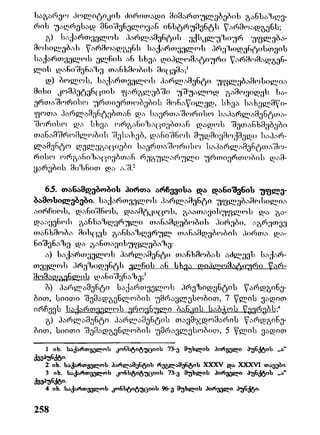 საგარეო პოლიტიკის ძირითადი მიმართულებების განსაზღვ-
რის უაღრესად მნიშვნელოვან ინსტრუმენტს წარმოადგენს;
გ) საქართველოს პარლამენტის ექსკლუზიურ უფლება-
მოსილებას წარმოადგენს საქართველოს პრეზიდენტისთვის
საქართველოს ელჩის ან სხვა დიპლომატიური წარმომადგენ-
ლის დანიშვნაზე თანხმობის მიცემა;¹
დ) ბოლოს, საქართველოს პარლამენტი უფლებამოსილია
მისი კომპეტენციის ფარგლებში უშუალოდ გამოვიდეს სა-
ერთაშორისო ურთიერთობების მონაწილედ, სხვა სახელმწი-
ფოთა პარლამენტებთან და საერთაშორისო საპარლამენტთა-
შორისო და სხვა ორგანიზაციებთან დადოს შეთანხმებები
თანამშრომლობის შესახებ, დანიშნოს მუდმივმოქმედი საპარ-
ლამენტო დელეგაციები საერთაშორისო საპარლამენტთაშო-
რისო ორგანიზაციებთან რეგულარული ურთიერთობის დამ-
ყარების მიზნით და ა.შ.²
6.5. თანამდებობის პირთა არჩევისა და დანიშვნის უფლე-
ბამოსილებები. საქართველოს პარლამენტი უფლებამოსილია
აირჩიოს, დანიშნოს, დაამტკიცოს, გაათავისუფლოს და გა-
დააყენოს განსაზღვრული თანამდებობის პირები. აგრეთვე
თანხმობა მისცეს განსაზღვრულ თანამდებობის პირთა და-
ნიშვნაზე და განთავისუფლებაზე:
ა) საქართველოს პარლამენტი თანხმობას აძლევს საქარ-
თველოს პრეზიდენტს ელჩის ან სხვა დიპლომატიური წარ-
მომადგენლის დანიშვნაზე;³
ბ) პარლამენტი საქართველოს პრეზიდენტის წარდგინე-
ბით, სიითი შემადგენლობის უმრავლესობით, 7 წლის ვადით
ირჩევს საქართველოს ეროვნული ბანკის საბჭოს წევრებს;⁴
გ) პარლამენტი პარლამენტის თავმჯდომარის წარდგინე-
ბით, სიითი შემადგენლობის უმრავლესობით, 5 წლის ვადით
1 იხ. საქართველოს კონსტიტუციის 73-ე მუხლის პირველი პუნქტის „ა“
ქვეპუნქტი.
2 იხ. საქართველოს პარლამენტის რეგლამენტის XXXV და XXXVI თავები.
3 იხ. საქართველოს კონსტიტუციის 73-ე მუხლის პირველი პუნქტის „ა“
ქვეპუნქტი.
4 იხ. საქართველოს კონსტიტუციის 96-ე მუხლის პირველი პუნქტი.
258